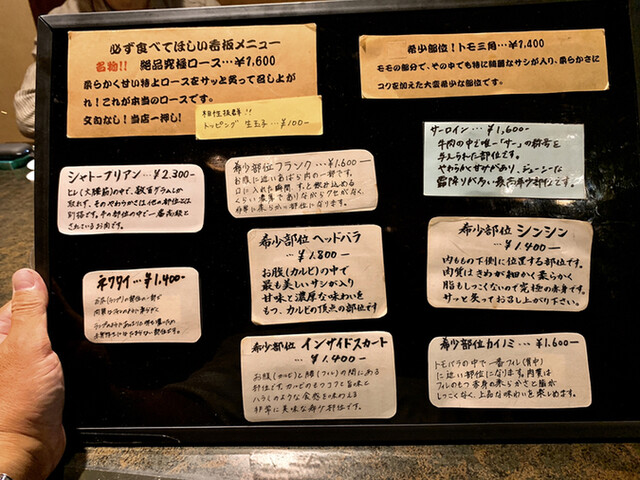 必ず食べてほしい看板メニュー
名物!! 絶品究極ロース…¥1,600
柔らかく甘い特上ロースをサッと炙って召し上が
れ！これが本当のロースです。
文句なし！当店一押し！
相性抜群!!
トッピング 生玉子…¥100-
希少部位！トモ三角…¥1,400
モモの部分で、その中でも特に綺麗なサシが入り、柔らかさに
コクを加えた大変希少な部位です。
サーロイン…¥1,600-
牛肉の中で唯一「サー」の称号を
与えられた部位です。
やわらかく甘みがあり、ジューシーな
霜降りが多い、最高希少部位です。
シャトーブリアン…¥2,300-
ヒレ(大腰筋)の中で、数百グラムしか
取れず、そのやわらかさは他の部位とは
別格です。牛の部位の中で一番高級と
されているお肉です。
希少部位フランク…¥1,600-
お腹に近いあばら肉の一部です。
口に入れた瞬間、すっと飲み込める
くらい濃厚でありながらクセがなく、
非常に柔らかい部位になります。
希少部位 ヘッドバラ
…¥1,800-
お腹(カルビ)の中で
最も美しいサシが入り
甘味と濃厚な味わいを
もつ、カルビの頂点の部位です
希少部位 シンシン
…¥1,400-
内ももの下側に位置する部位です。
肉質はきめが細かく柔らかく
脂もしつこくないので究極の赤身です。
サッと炙ってお召し上がり下さい。
ネクタイ…¥1,400-
希少部位 インサイドスカート
…¥1,400-
お腹(カルビ)と腰(フィレ)の間にある
部位です。カルビのもつコクと旨味と
ハラミのような食感を味わえる
非常に美味な希少部位です。
希少部位カイノミ…¥1,600-
トモバラの中で一番フィレ(背中)
に近い部位になります。肉質は
フィレのもつ赤身の柔らかさと脂が
しつこくなく、上品な味わいを楽しめます。